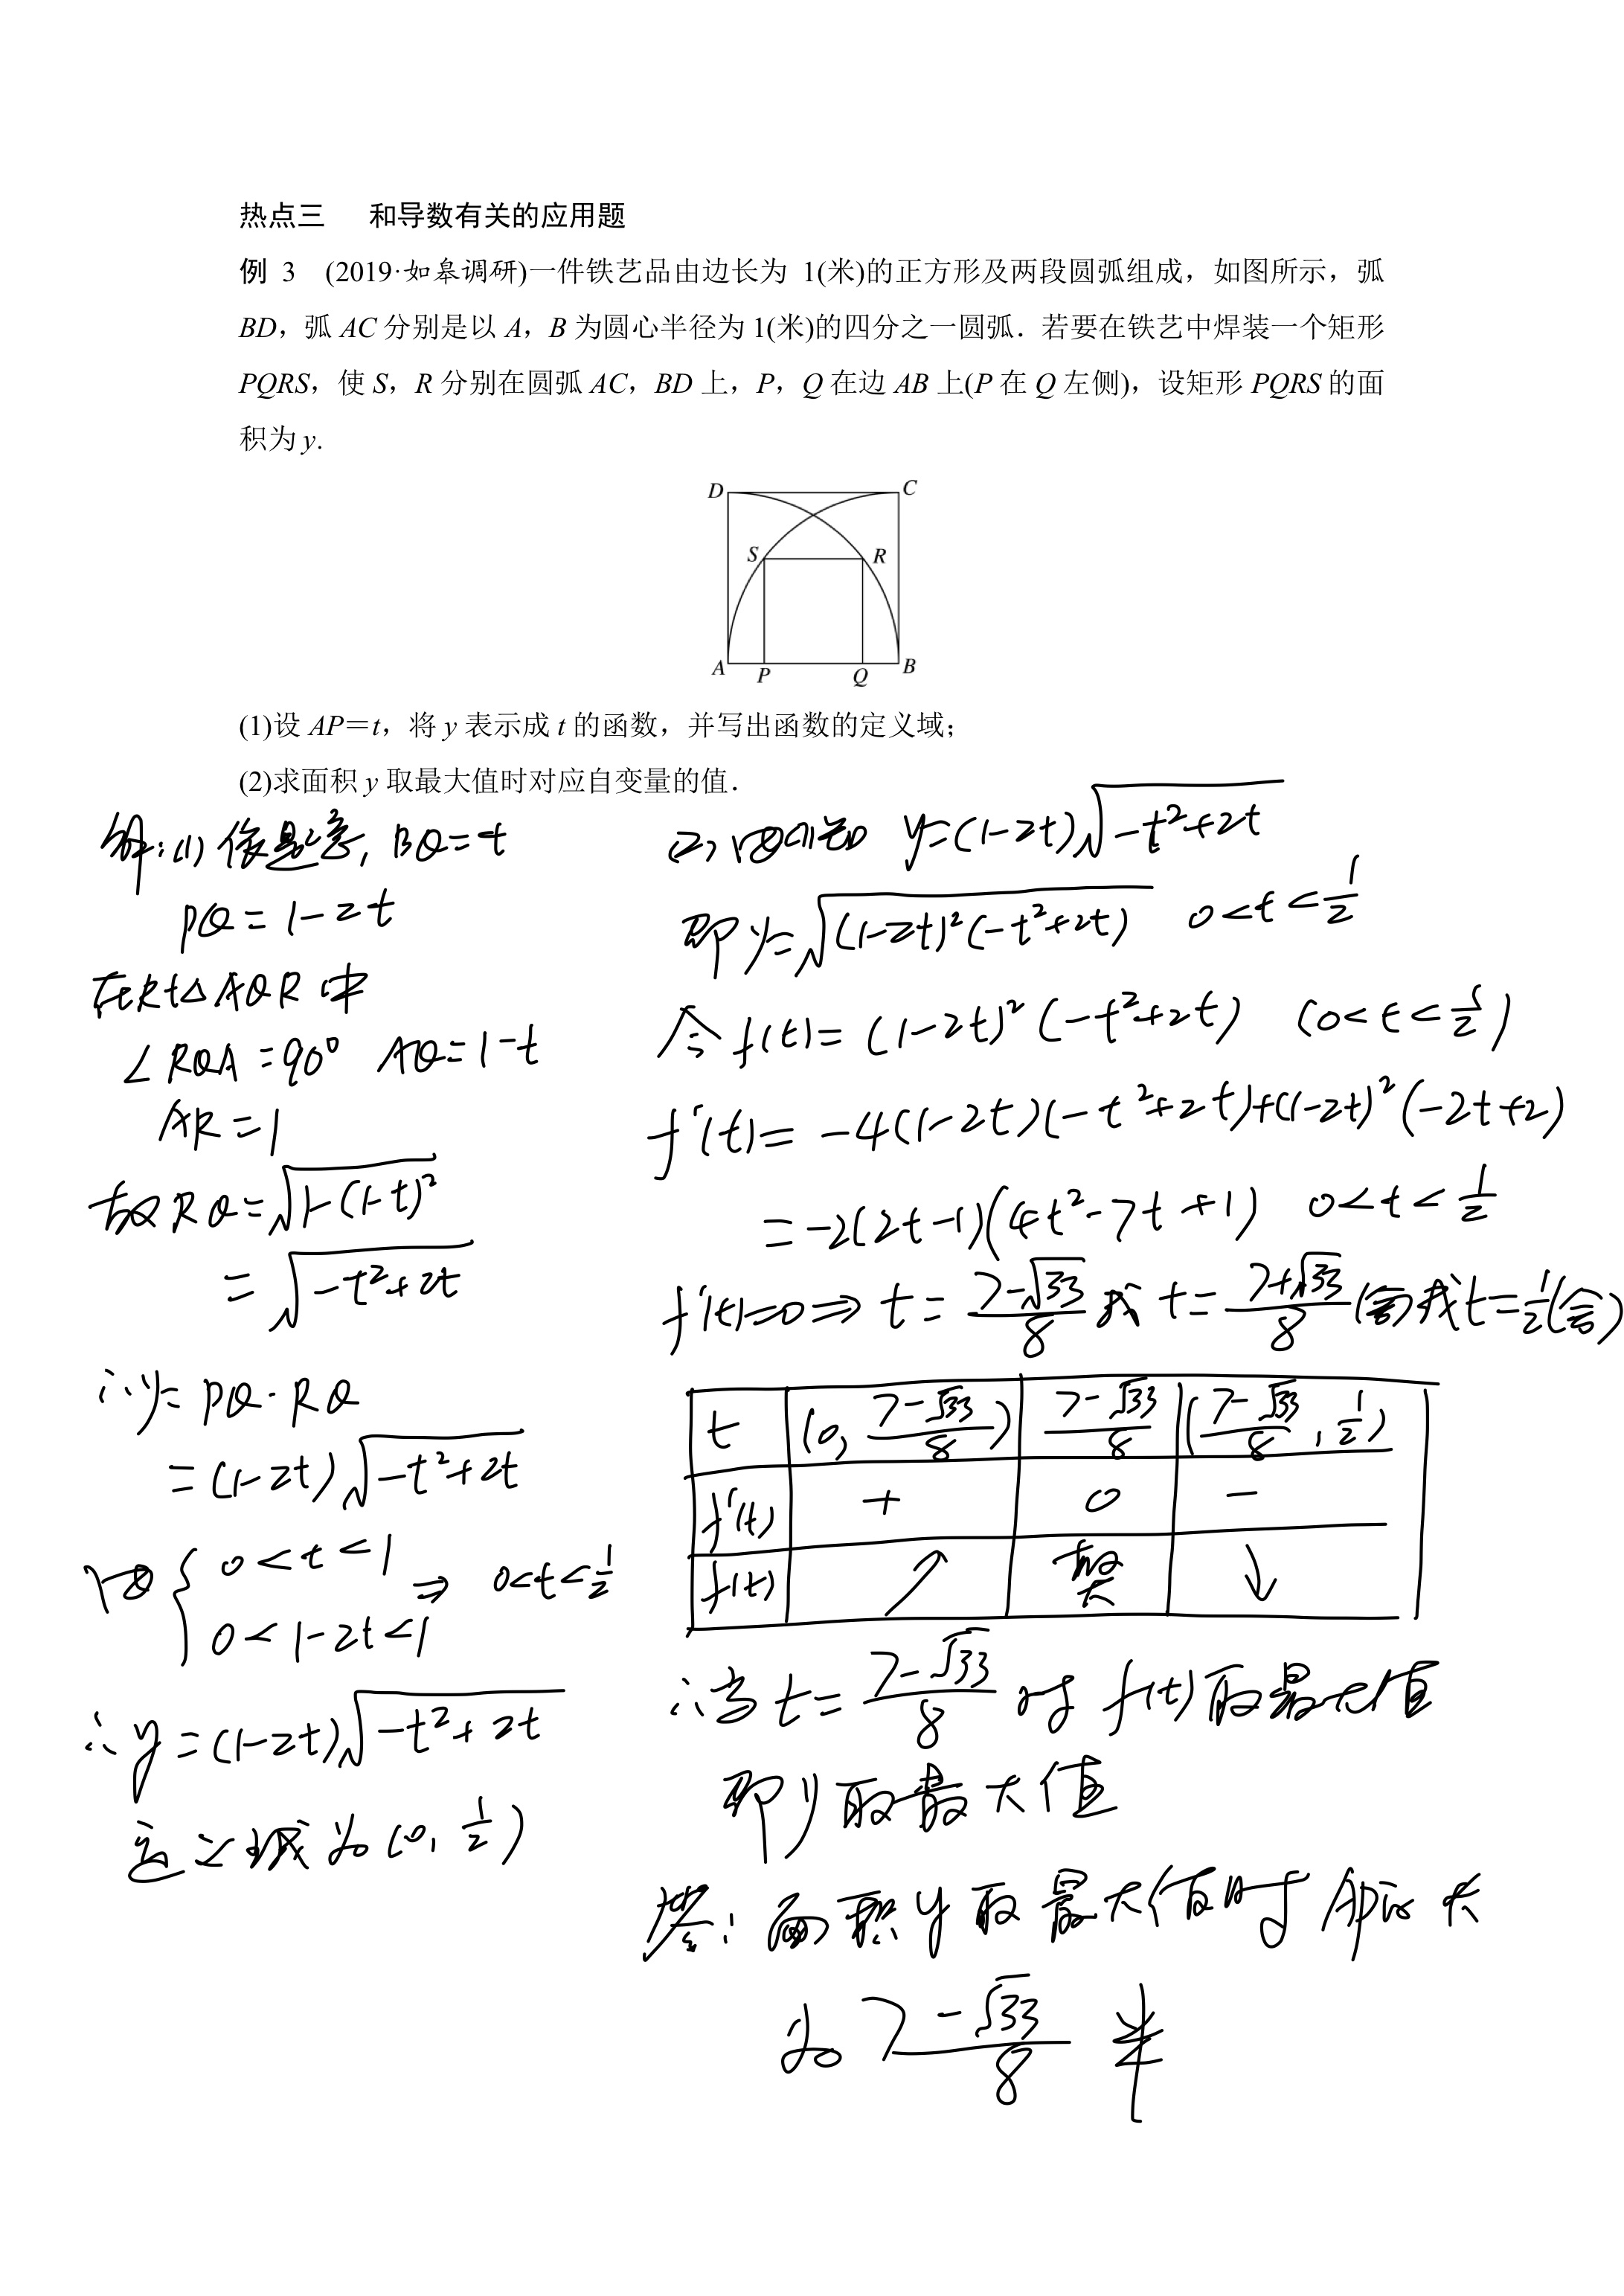 热点三 和导数有关的应用题
例 3 (2019·如皋调研)一件铁艺品由边长为 1(米)的正方形及两段圆弧组成，如图所示，弧
BD，弧 AC 分别是以 A，B 为圆心半径为 1(米)的四分之一圆弧．若要在铁艺中焊装一个矩形
PQRS，使 S，R 分别在圆弧 AC，BD 上，P，Q 在边 AB 上(P 在 Q 左侧)，设矩形 PQRS 的面
积为 y.
D C
S R
A P Q B
(1)设 AP＝t，将 y 表示成 t 的函数，并写出函数的定义域；
(2)求面积 y 取最大值时对应自变量的值．
解：(1) 依题意, BQ=t
PQ=1-2t
在Rt△AQR中
∠RQA=90° AQ=1-t
AR=1
故RQ=√(1-(1-t)²)
=√(-t²+2t)
∴y=PQ·RQ
=(1-2t)√(-t²+2t)
由{0<t<1 ⇒ 0<t<1/2
0<1-2t<1
∴y=(1-2t)√(-t²+2t)
定义域为(0, 1/2)
(2) 由(1)知 y=(1-2t)√(-t²+2t)
即y=√((1-2t)²(-t²+2t)) 0<t<1/2
令f(t)=(1-2t)²(-t²+2t) (0<t<1/2)
f'(t)=-4(1-2t)(-t²+2t)+(1-2t)²(-2t+2)
=-2(2t-1)(4t²-7t+1) 0<t<1/2
f'(t)=0⇒t=(7-√33)/8或t=(7+√33)/8(舍)或t=1/2(舍)
t (0, (7-√33)/8) (7-√33)/8 ((7-√33)/8, 1/2)
f'(t) + 0 -
f(t) ↗ 极大 ↓
∴当t=(7-√33)/8时f(t)取最大值
即y取最大值
答：面积y取最大值时AP的长
为(7-√33)/8 米